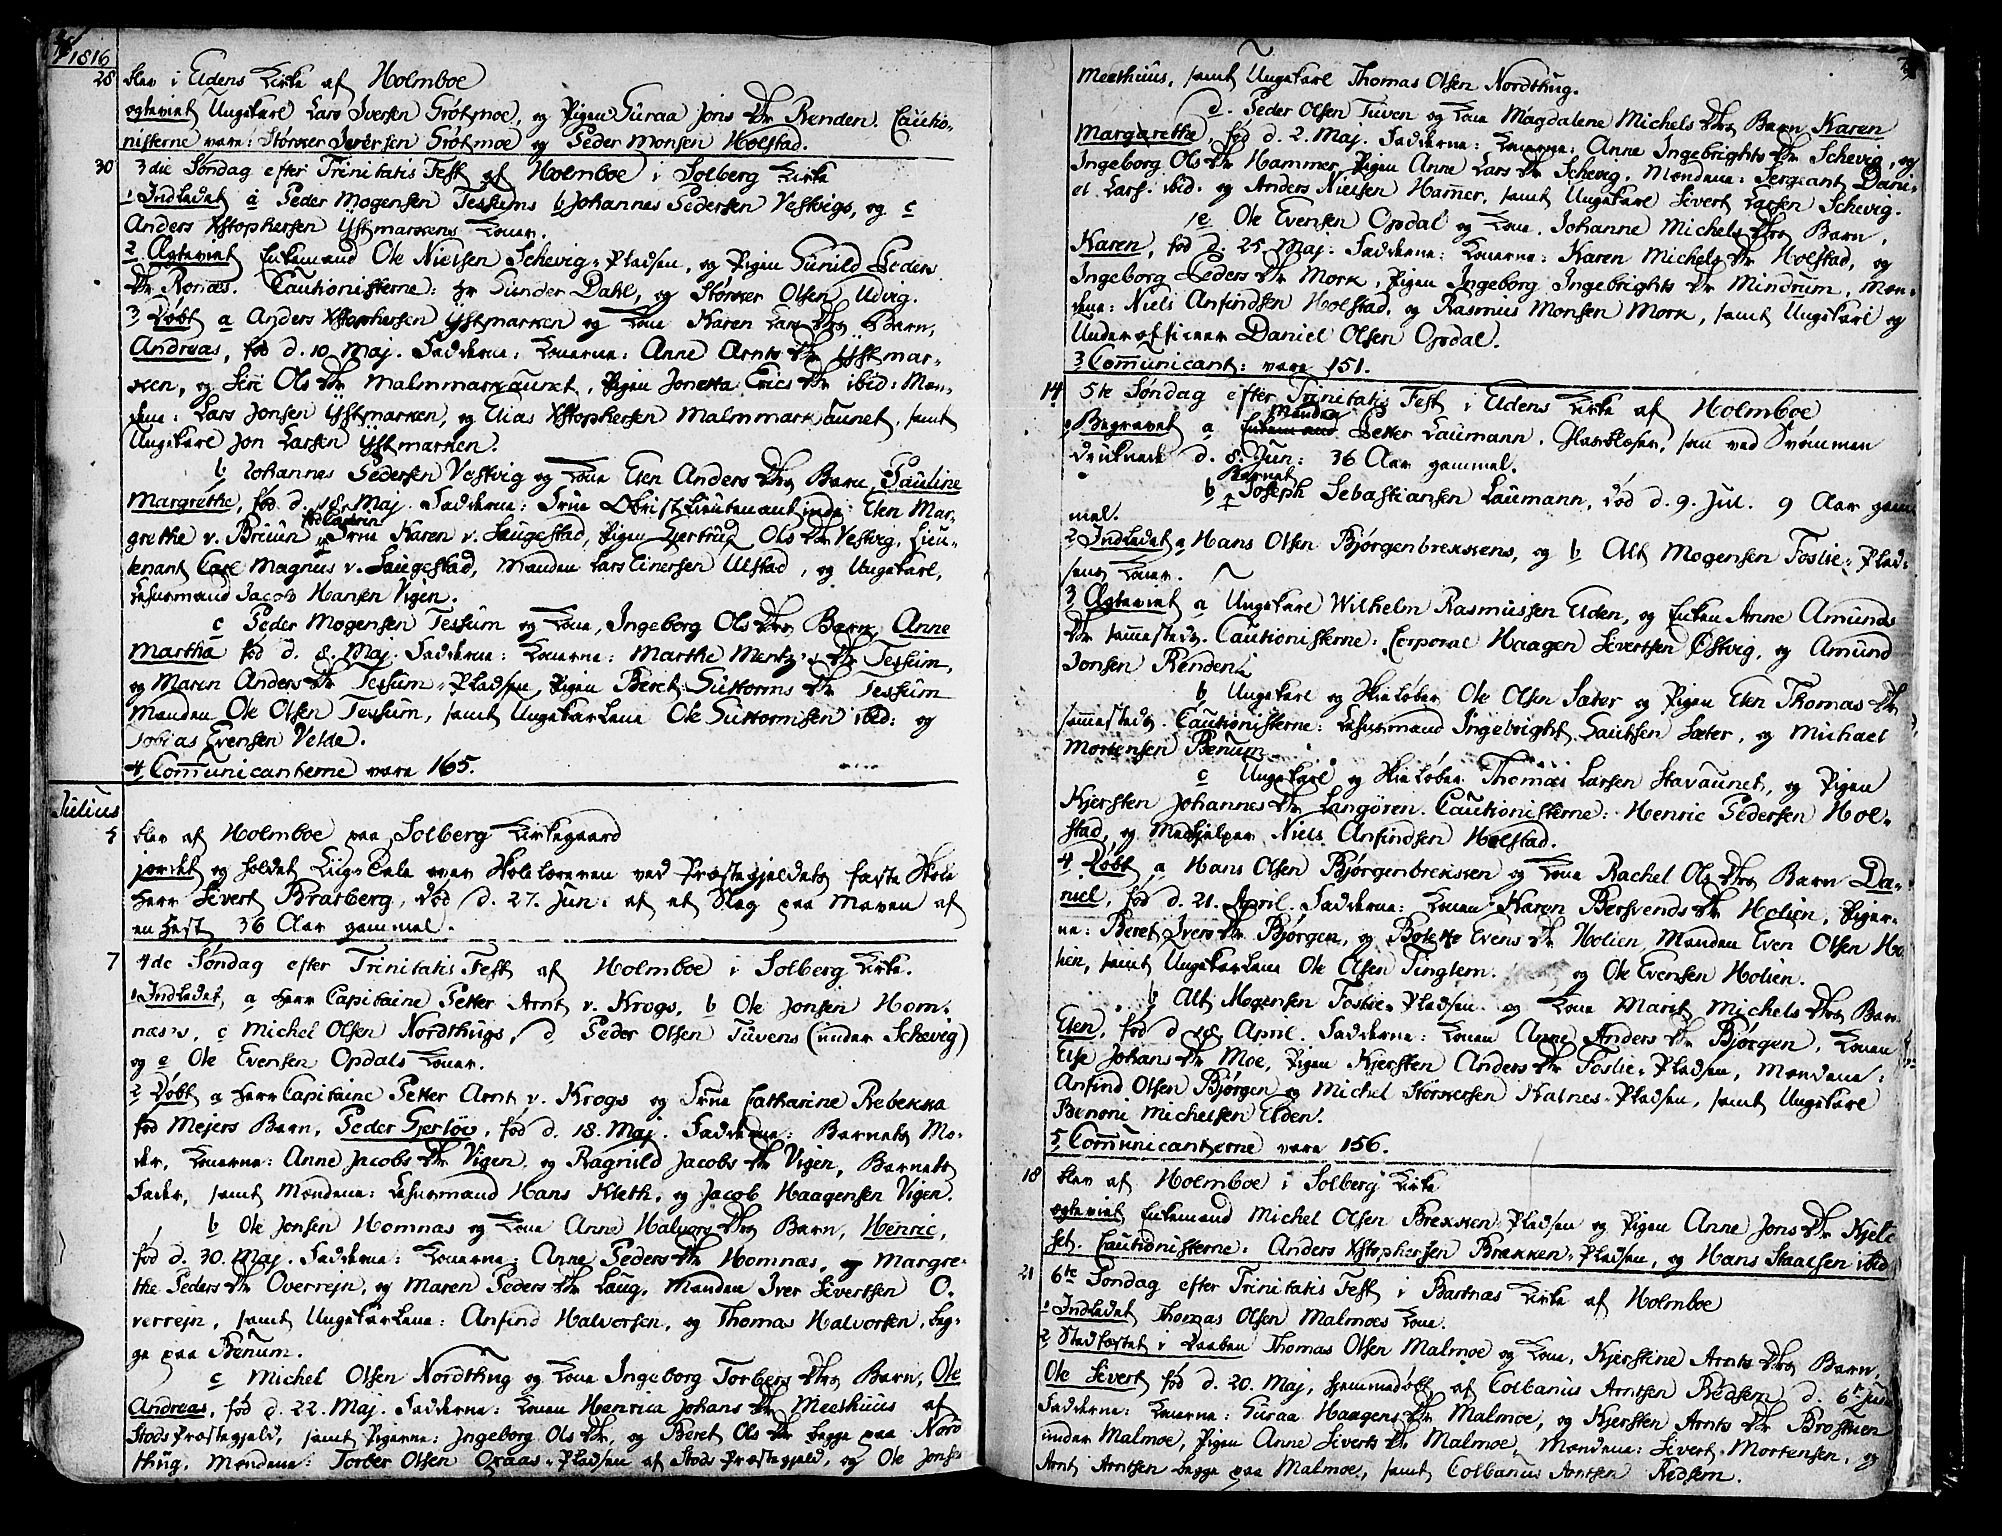 1816
28 blev i Eldens Kirke af Holmboe
egteviet Ungekarl Lars Iversen Grótmoe, og Pigen Guraa Jons Dr Renden. Cautio-
nisterne vare: Størker Iversen Grótmoe og Peder Monsen Holstad.
30 3die Søndag efter Trinitatis Fest af Holmboe i Solberg Kirke
1 Indledet a Peder Mogensen Tessums b Johannes Pedersen Vestvigs, og c
Anders Xstophersen Ystmarkens Koner.
2 Ægteviet Enkemand Ole Nielsen Schevig-Pladsen, og Pigen Gunild Peders
Dr Ronæs. Cautionisterne: Hr Gunder Dahl, og Størker Olsen Udvig.
3 Døbt a Anders Xstophersen Ystmarken og Kone Karen Lars Drs Barn,
Andreas, fød d. 10 Maj. Fadderne: Konerne: Anne Arnts Dr Ystmar-
ken, og Siri Ols Dr Malmmarkaunet, Pigen Jonetta Erics Dr ibid: Mæn-
dene: Lars Jonsen Ystmarken, og Elias Xstophersen Malmmarkaunet, samt
Ungekarl Jon Larsen Ystmarken.
b Johannes Pedersen Vestvig og Kone Elen Anders Drs Barn, Pauline
Margrethe, fød d. 18. Maj. Fadderne: Frue Obristlieutenantinde: Elen Mar-
grethe v. Bruun, Frue Karen v. Saugestad, Pigen Gjertrud Ols Dr Vestvig, Lieu-
tenant Carl Magnus v. Saugestad, Manden Lars Einersen Ulstad, og Ungekarl,
Lehnsmand Jacob Hansen Vigen.
c Peder Mogensen Tessum og Kone, Ingeborg Ols Drs Barn, Anne
Martha fød d. 8. Maj. Fadderne: Konerne: Marthe Mentz's Dr Tessum,
og Maren Anders Dr Tessum-Pladsen, Pigen Beret Guttorms Dr Tessum
Manden Ole Olsen Tessum, samt Ungekarlene Ole Guttormsen ibid: og
Tobias Evensen Velde.
4 Comunicanterne vare 165.
Julius
5 blev af Holmboe paa Solberg Kirkegaard
jordet og holdet Liigtale over Skolelæreren ved Præstegjeldets faste Skole
Herr Sivert Bratberg, død d. 27. Jun: af et Slag paa Maven af
en Hest 36 Aar gammel.
7 4de Søndag efter Trinitatis Fest af Holmboe i Solberg Kirke.
1 Indledet, a Herr Capitaine Petter Arnt v. Krogs, b Ole Jonsen Hom-
næs's, c Michel Olsen Nordthugs, d Peder Olsen Tuvens (under Schevig)
og e Ole Evensen Opdals Koner.
2 Døbt a Herr Capitaine Petter Arnt v. Krogs og Frue Catharine Rebekka
fød Mejers Barn, Peder Gjerløv, fød d. 18. Maj. Fadderne: Barnets Mo-
der, Konerne: Anne Jacobs Dr Vigen og Ragnild Jacobs Dr Vigen, Barnets
Fader, samt Mændene: Lehnsmand Hans Kleth, og Jacob Haagensen Vigen.
b Ole Jonsen Homnæs og Kone Anne Halvors Drs Barn, Henric,
fød d. 30. Maj. Fadderne: Konerne: Anne Peders Dr Homnæs, og Margre-
the Peders Dr Overrejn, og Maren Peders Dr Laug, Manden Iver Sivertsen O-
verrejn, samt Ungekarlene: Anfind Halvorsen, og Thomas Halvorsen, beg-
ge paa Benum.
c Michel Olsen Nordthug og Kone Ingeborg Torbers Drs Barn, Ole
Andreas, fød d. 22. Maj. Fadderne: Konen Henrica Johans Dr Meethuus af
Stods Præstegjeld, samt Pigerne: Ingeborg Ols Dr, og Beret Ols Dr begge paa Nord
thug, Mændene: Torber Olsen Qvaas-Pladsen af Stods Præstegjeld, og Ole Jonse
Meethuus, samt Ungekarl Thomas Olsen Nordthug.
d. Peder Olsen Tuven og Kone Magdalene Michels Drs Barn Karen
Margarethe, fød d. 2. Maj. Fadderne: Konerne: Anne Ingebrights Dr Schevig, og
Ingeborg Ols Dr Hammer, Pigen Anne Lars Dr Schevig, Mændene: Sergeant Dani-
el Lars: ibid. og Anders Nielsen Hamer, samt Ungekarl Sivert Larsen Schevig.
e Ole Evensen Opdal og Kone Johanne Michels Drs Barn,
Karen, fød d. 25. Maj. Fadderne: Konerne: Karen Michels Dr Holstad, og
Ingeborg Peders Dr Mork, Pigen Ingeborg Ingebrights Dr Mindrum, Mæn-
dene: Niels Anfindsen Holstad, og Rasmus Monsen Mork, samt Ungekarl og
Underofficeer Daniel Olsen Opdal.
3 Comunicant: vare 151.
14 5te Søndag efter Trinitatis Fest i Eldens Kirke af Holmboe
1 Begravet a Manden Petter Laumann, Glasblæser, som ved Svømmen
druknede d. 8. Jun: 36 Aar gammel.
b Barnet Joseph Sebastiansen Laumann, død d. 9. Jul. 9 Aar gam-
mel.
2 Indledet a Hans Olsen Bjørgenbrekkens, og b Alt Mogensen Foslie-Plad-
sens Koner.
3 Ægteviet a Ungekarl Wilhelm Rasmussen Elden, og Enken Anne Amunds
Dr sammesteds. Cautionisterne: Corporal Haagen Sivertsen Østvig, og Amund
Jonsen Renden.
b Ungekarl og Skieløber Ole Olsen Sæter og Pigen Elen Thomas Dr
sammesteds. Cautionisterne: Lehnsmand Ingebright Gautsen Sæter, og Michael
Mortensen Benum.
c Ungekarl og Skieløber Thomas Larsen Stavaunet, og Pigen
Kjersten Johannes Dr Langören. Cautionisterne: Henric Pedersen Hol-
stad, og Medhjelper Niels Anfindsen Holstad.
4 Døbt a Hans Olsen Bjørgenbrekken og Kone Rachel Ols Drs Barn Da-
niel, fød d. 21. April. Fadderne: Konen Karen Bersvends Dr Holien, Piger-
ne: Beret Ivers Dr Bjørgen, og Bolette Evens Dr Holien, Manden Even Olsen Ho
lien, samt Ungekarlene Ole Olsen Tinglem. og Ole Evensen Holien.
b Alt Mogensen Foslie-Pladsen og Kone Maret Michels Drs Barn
Elen, fød d 18 April. Fadderne: Konen Anne Anders Dr Bjørgen, Konen
Else Johans Dr Moe, Pigen Kjersten Anders Dr Foslie-Pladsen, Mændene:
Anfind Olsen Bjørgen og Michel Storkersen Halnes-Pladsen, samt Ungekarl
Benoni Michelsen Elden.
5 Comunicanterne vare 156.
18 blev af Holmboe i Solberg Kirke
egteviet Enkemand Michel Olsen Brekken-Pladsen og Pigen Anne Jons Dr Kjels
set. Cautionisterne: Anders Xstophersen Brækken-Pladsen, og Hans Staalsen ibid
21 6te Søndag efter Trinitatis Fest i Bartnæs Kirke af Holmboe
1 Indledet Thomas Olsen Malmoes Kone.
2 Stadfæstet i Daaben Thomas Olsen Malmoe og Kone, Kjerstine Arnts Drs Barn,
Ole Sivert fød d. 20. Maj, hjemmedøbt af Colbanus Arntsen Rødsem d. 6te Juni
Fadderne: Konerne: Guraa Haagens Dr Malmoe, og Kjersten Arnts Dr Brostuen
under Malmoe, Pigen Anne Siverts Dr Malmoe, Mændene: Sivert Mortensen, og
Arnt Arntsen begge paa Malmoe, samt Colbanus Arntsen Rødsem.